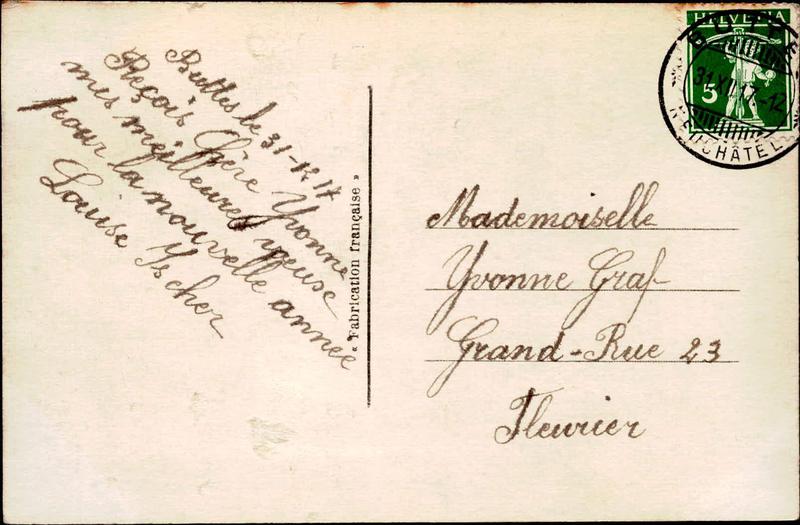 Buttes le 31-12 17
Reçois Chère Yvonne
mes meilleures veuse
pour la nouvelle année
Louise Ischer
« Fabrication française »
HELVETIA
5
BUTTES
31.XII.17.-12
NEUCHÂTEL
Mademoiselle
Yvonne Graf
Grand-Rue 23
Fleurier